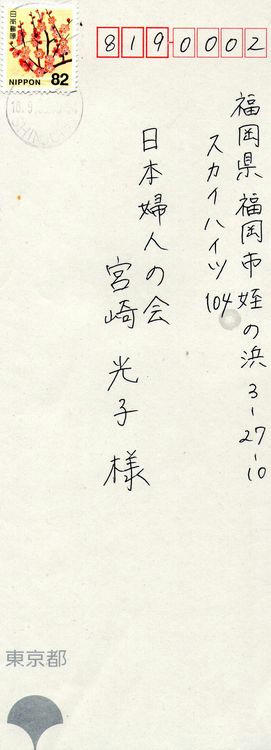 819-0002
福岡県福岡市姪の浜3-27-10
スカイハイツ104
日本婦人の会
宮崎光子様
日本郵便
NIPPON 82
東京都